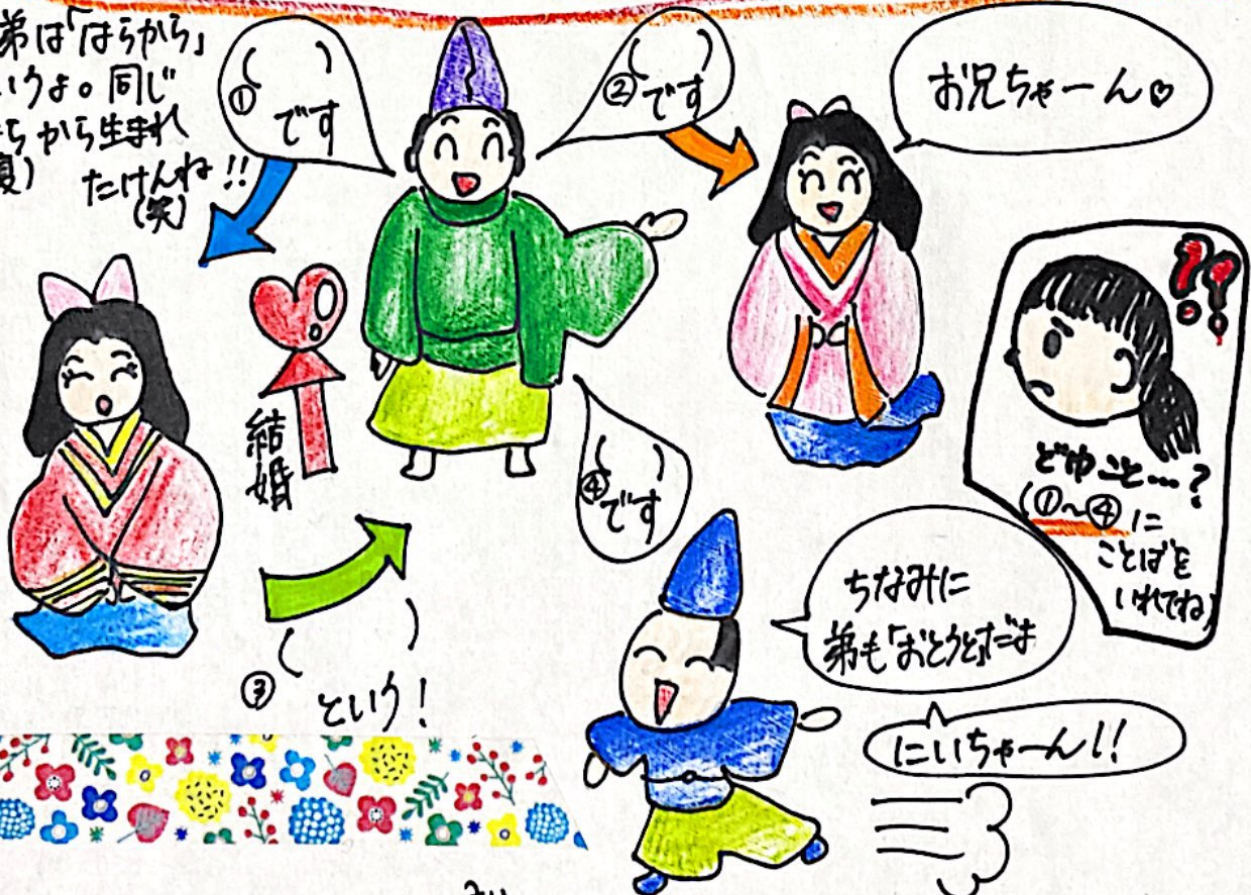 弟は「はらから」
いうよ。同じ
から生まれ
たけんね!!
(笑)
( )
①です
( )
②です
お兄ちゃーん♡
結婚
( )
④です
⁉
どゆこと…?
(①〜④に
ことばを
いれてね)
ちなみに
弟も「おとうと」だよ
にいちゃーん!!
③( )
という!